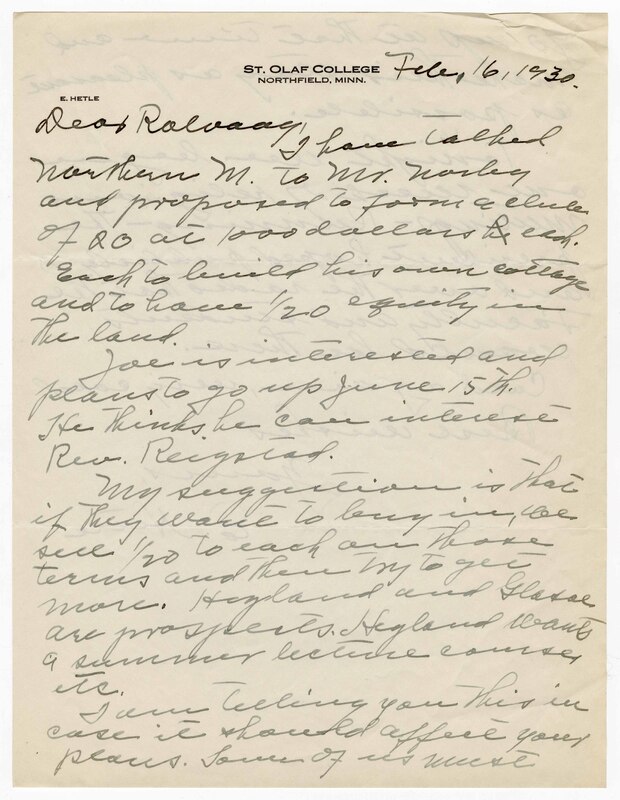 ST. OLAF COLLEGE
NORTHFIELD, MINN.
Feb. 16, 1930.
E. HETLE
Dear Rolvaag,
I have talked
Northern M. to Mr. Norby
and proposed to form a club
of 20 at 1000 dollars each.
Each to build his own cottage
and to have 1/20 equity in
the land.
Joe is interested and
plans to go up June 15th.
He thinks he can interest
Rev. Reigstad.
My suggestion is that
if they want to buy in, we
sell 1/20 to each on those
terms and then try to get
more. Hegland and Glasoe
are prospects. Hegland wants
a summer lecture course,
etc.
I am telling you this in
case it should affect your
plans. Some of us must